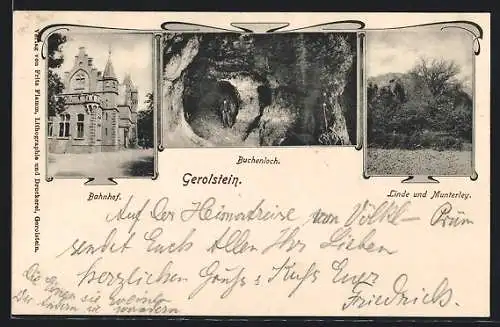 Verlag von Fritz Flamm, Lithographie und Druckerei, Gerolstein.
Bahnhof.
Buchenloch.
Linde und Munterley.
Gerolstein.
Auf der Heimatreise von Prüm
sendet Euch Allen Ihr Lieben
herzlichen Gruß & Kuss Euer
Friedrich.